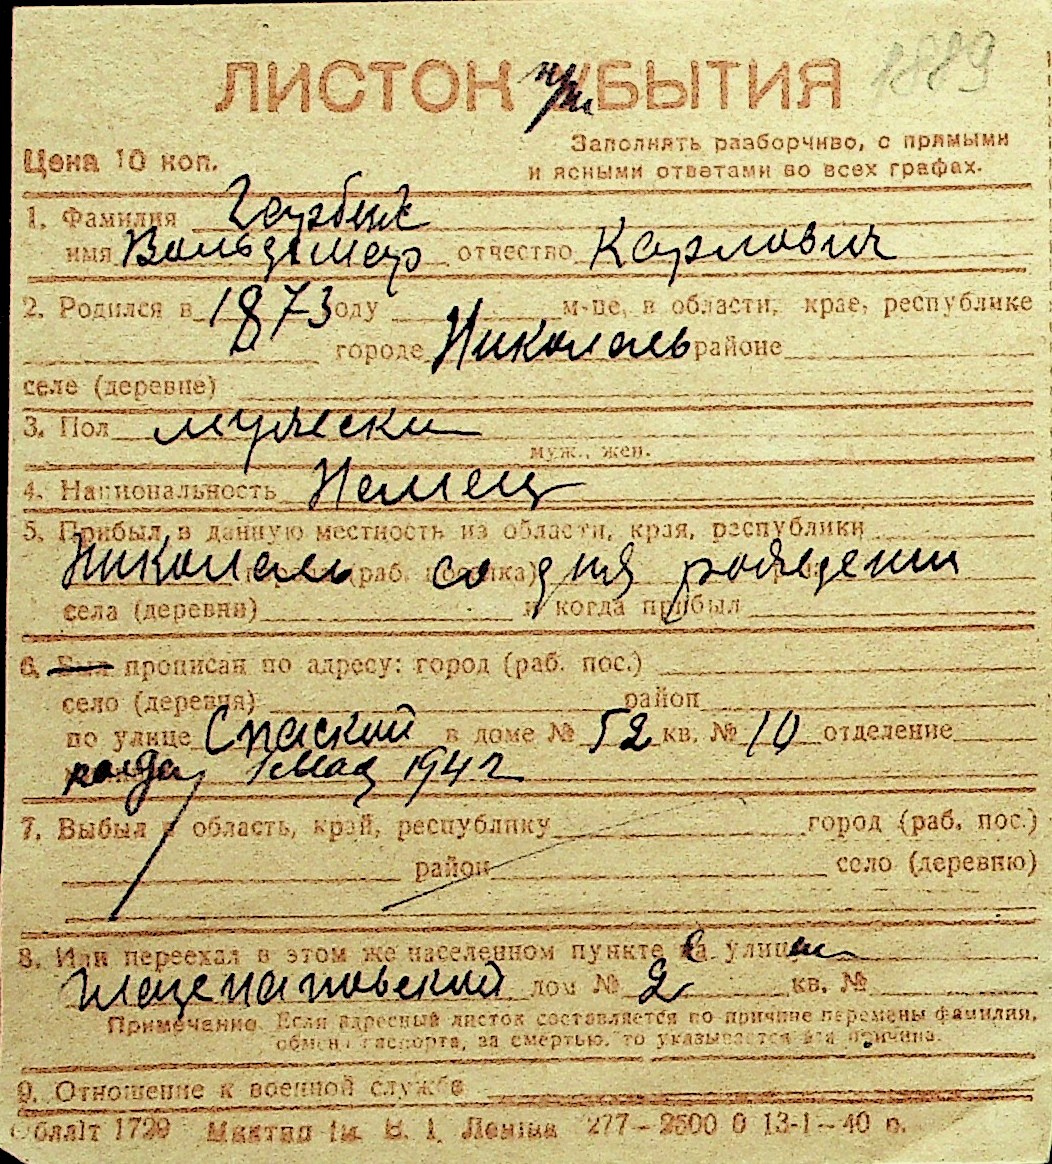 1889
ЛИСТОК при БЫТИЯ
Заполнять разборчиво, с прямыми
Цена 10 коп.
и ясными ответами во всех графах.
1. Фамилия
имя Вольдемар отчество Карлович
2. Родился в 1873 оду м-це, в области, крае, республике
городе Николаев районе
селе (деревне)
3. Пол мужески
муж., жен.
4. Национальность Немец
5. Прибыл в данную местность из области, края, республики
Николаев со дня рождении
села (деревни) и когда прибыл
6. Был прописан по адресу: город (раб. пос.)
село (деревня) район
по улице Спаский в доме № 52 кв. № 10 отделение
когда 1 мая 1942
7. Выбыл в область, край, республику город (раб. пос.)
район село (деревню)
8. Или переехал в этом же населенном пункте на улицы
дом № 2 кв. №
Примечание. Если адресный листок составляется по причине перемены фамилия,
обмена паспорта, за смертью, то указывается эта причина.
9. Отношение к военной службе
Обллiт 1729 Ленiна 277-2500 0 13-1-40 р.